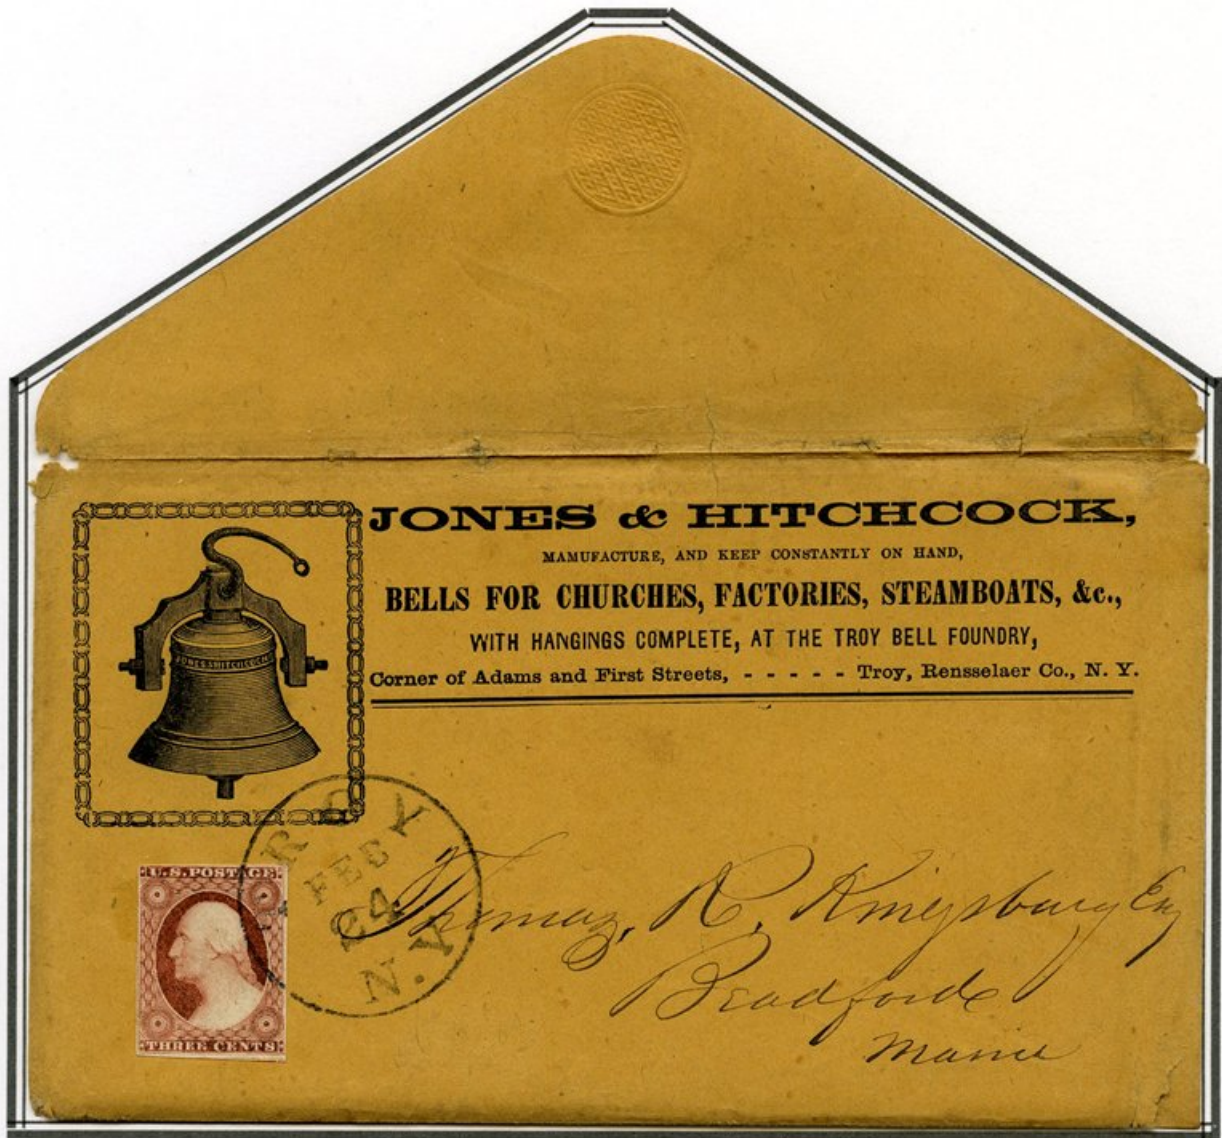 JONES & HITCHCOCK,
MAMUFACTURE, AND KEEP CONSTANTLY ON HAND,
BELLS FOR CHURCHES, FACTORIES, STEAMBOATS, &c.,
WITH HANGINGS COMPLETE, AT THE TROY BELL FOUNDRY,
Corner of Adams and First Streets, - - - - - Troy, Rensselaer Co., N. Y.
JONES & HITCHCOCK
TROY
FEB
24
N.Y.
U.S. POSTAGE
THREE CENTS
Thomas. R. Kingsbury Esq
Bradford
Maine